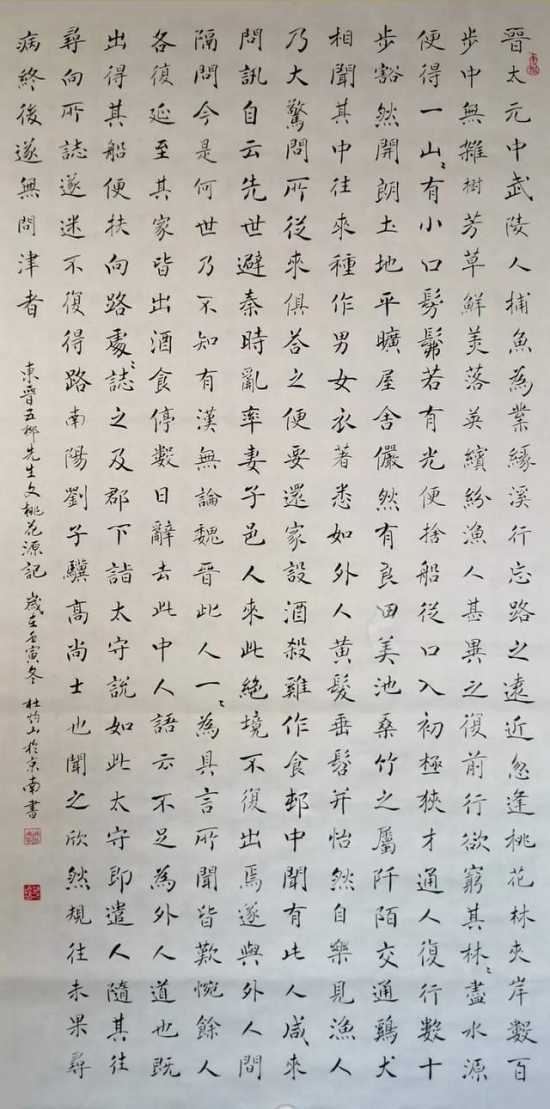 晉太元中武陵人捕魚為業緣溪行忘路之遠近忽逢桃花林夾岸數百
步中無雜樹芳草鮮美落英繽紛漁人甚異之復前行欲窮其林〻盡水源
便得一山〻有小口髣髴若有光便捨船從口入初極狹才通人復行數十
步豁然開朗土地平曠屋舍儼然有良田美池桑竹之屬阡陌交通鷄犬
相聞其中往來種作男女衣著悉如外人黃髮垂髫并怡然自樂見漁人
乃大驚問所從來俱荅之便要還家設酒殺雞作食邨中聞有此人咸來
問訊自云先世避秦時亂率妻子邑人來此絕境不復出焉遂與外人間
隔問今是何世乃不知有漢無論魏晉此人一〻為具言所聞皆歎惋餘人
各復延至其家皆出酒食停數日辭去此中人語云不足為外人道也既
出得其船便扶向路處〻誌之及郡下詣太守說如此太守即遣人隨其往
尋向所誌遂迷不復得路南陽劉子驥高尚士也聞之欣然規往未果尋
病終後遂無問津者
東晉五柳先生文桃花源記 歲在壬寅冬 杜灼山於京南書